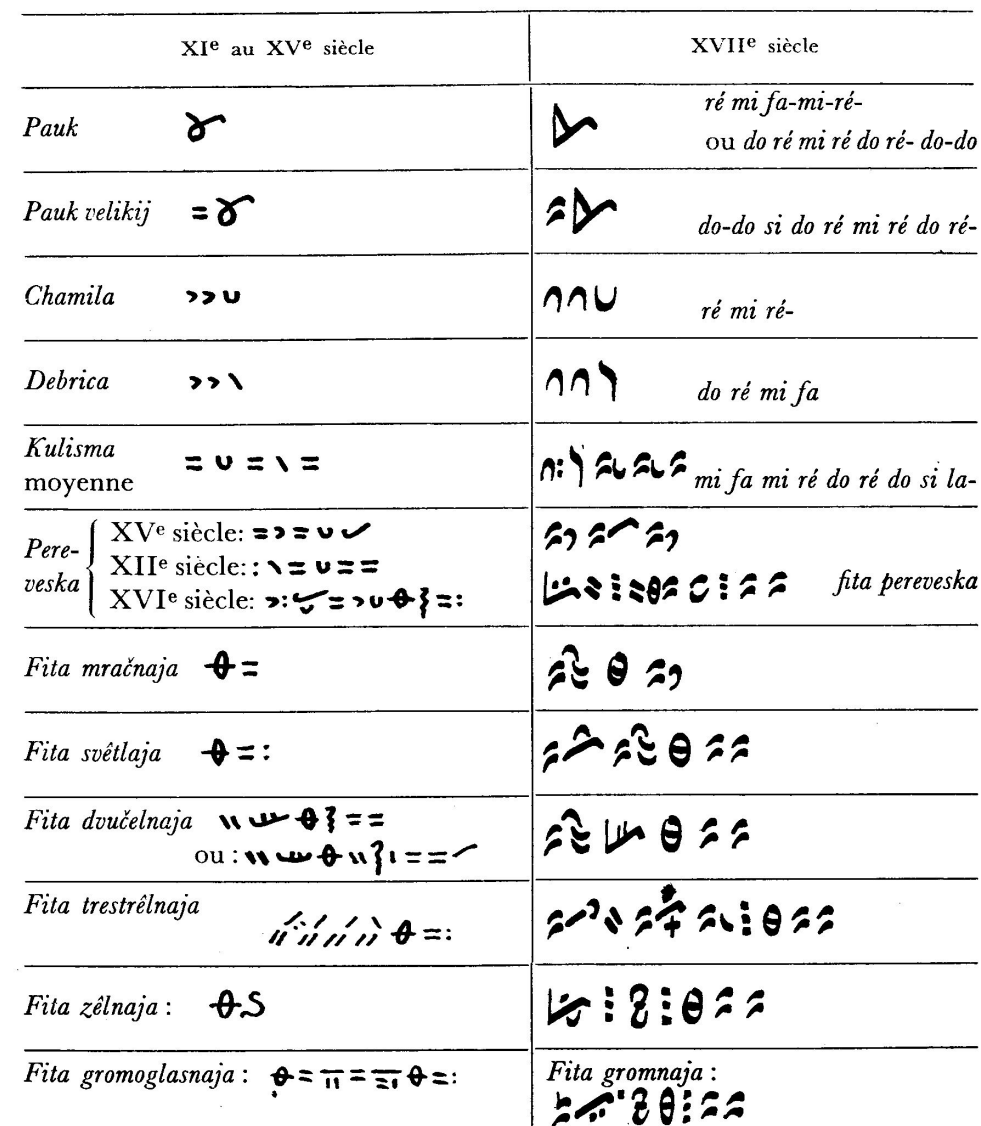 XIe au XVe siècle XVIIe siècle
Pauk ré mi fa-mi-ré-
ou do ré mi ré do ré- do-do
Pauk velikij do-do si do ré mi ré do ré-
Chamila ré mi ré-
Debrica do ré mi fa
Kulisma
moyenne mi fa mi ré do ré do si la-
Pere-
veska
XVe siècle:
XIIe siècle:
XVIe siècle:
fita pereveska
Fita mračnaja
Fita svêtlaja
Fita dvučelnaja
ou :
Fita trestrêlnaja
Fita zêlnaja :
Fita gromoglasnaja : Fita gromnaja :